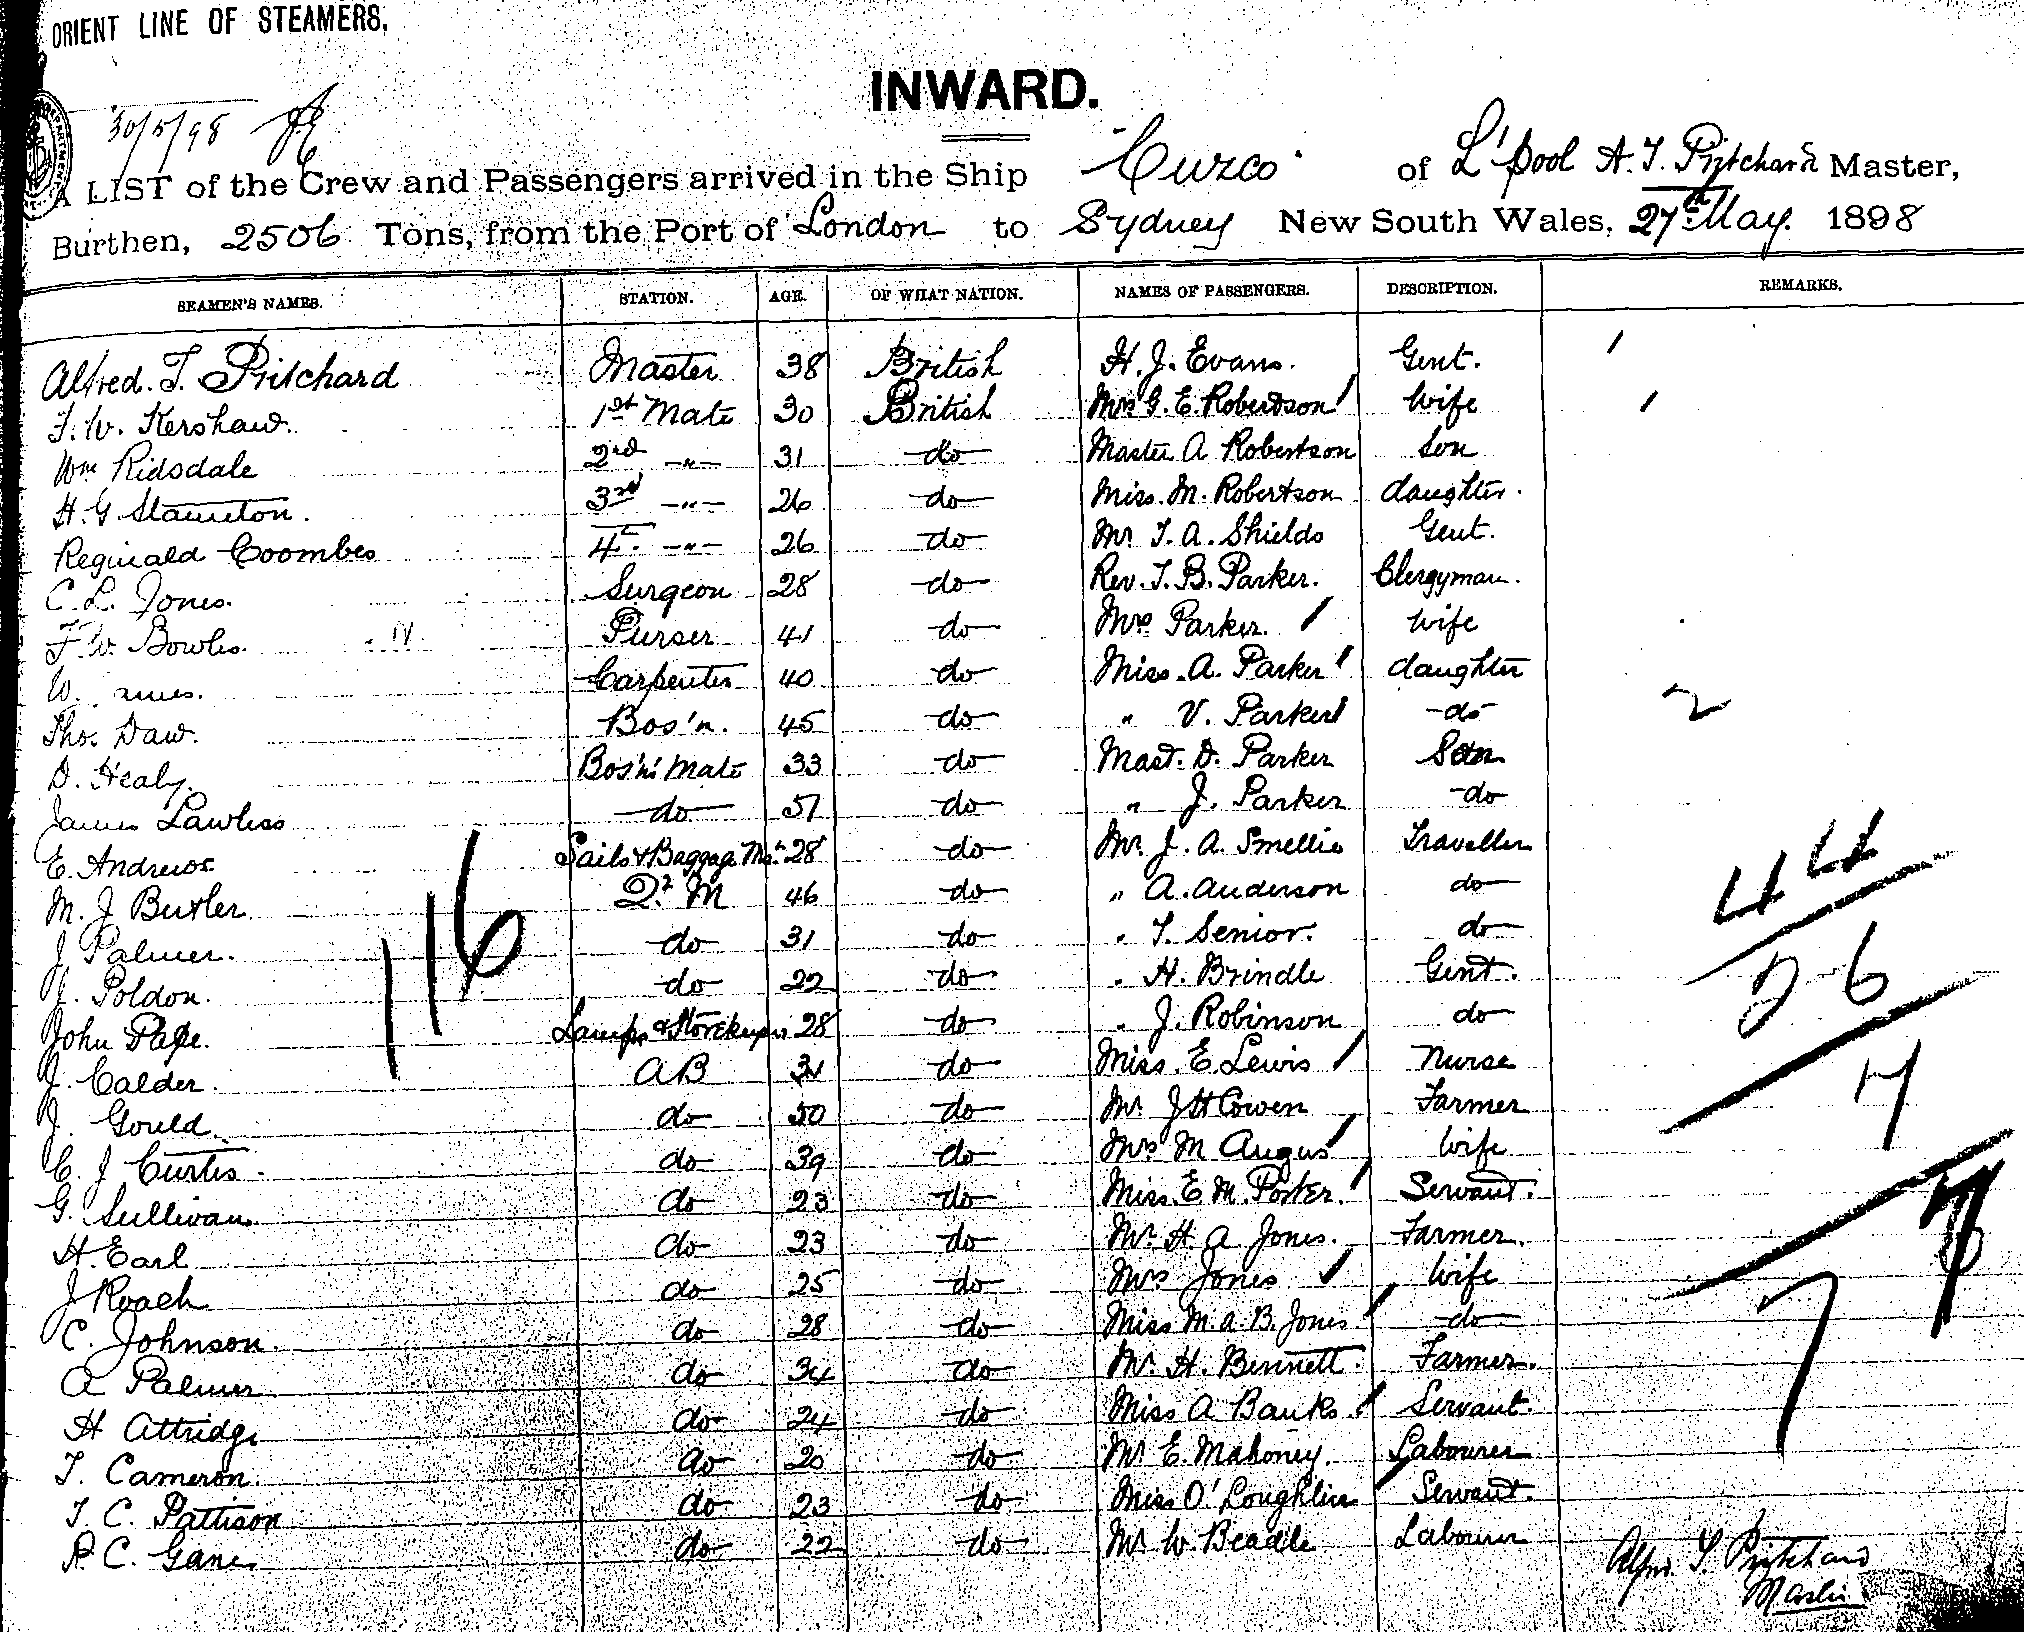 ORIENT LINE OF STEAMERS.
INWARD.
30/5/98
A LIST of the Crew and Passengers arrived in the Ship "Cuzco" of L'pool A. T. Pritchard Master,
Burthen, 2506 Tons, from the Port of London to Sydney New South Wales, 27th May. 1898
SEAMEN'S NAMES. STATION. AGE. OF WHAT NATION. NAMES OF PASSENGERS. DESCRIPTION. REMARKS.
Alfred. T. Pritchard Master 38 British H. J. Evans. Gent.
F. W. Kershaw. 1st Mate 30 British Mrs G. E. Robertson wife
Wm Ridsdale 2nd -"- 31 do Master A Robertson son
H. G 3rd -"- 26 do Miss. M. Robertson daughter.
Reginald Coombes 4th -"- 26 do Mr T. A. Shields Gent.
C. L. Jones. Surgeon 28 do Rev. T. B. Parker. Clergyman.
F. W. Bowles. Purser 41 do Mrs Parker. wife
W. Carpenter 40 do Miss. A. Parker daughter
Thos. Daw. Bos'n. 45 do " V. Parker do
D. Healy. Bos'ns Mate 33 do Mast. D. Parker Son
James Lawless do 51 do " J. Parker do
E. Andrews Sails & Baggage Mn 28 do Mr. J. A. Smellie Traveller
M. J Butler Qr M 46 do " A. Anderson do
J Palmer. do 31 do " T. Senior. do
Poldon. do 22 do " H. Brindle Gent.
John Page. Lamps & Storekeeper 28 do " J. Robinson do
J. Calder. AB do Miss. E Lewis Nurse
J. Gould. do 50 do Mr J H Cowen Farmer
C. J Curtis. do 39 do Mrs M Angus wife
G. Sullivan. do 23 do Miss. E. M. Porter. Servant.
H. Earl do 23 do Mr. H. A Jones. Farmer.
J Roach do 25 do Mrs Jones wife
C. Johnson. do 28 do Miss M. A. B. Jones do
A Palmer do 34 do Mr. H. Bennett. Farmer.
H Attridge do 24 do Miss A Banks Servant.
T. Cameron. do 20 do Mr E. Mahoney. Labourer
T. C. Pattison do 23 do Miss O'Loughlin Servant.
P. C. Ganes do 22 do Mr W. Beadle Labourer
116
2
44
26
7
Alfd. T. Pritchard
Master